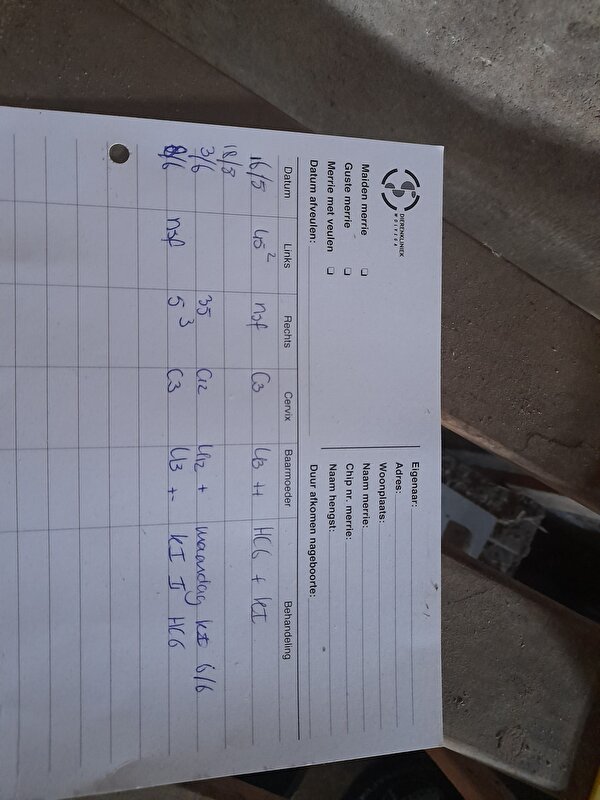 DIERENKLINIEK
WOLVEGA
Maiden merrie
Guste merrie
Merrie met veulen
Datum afveulen:
Eigenaar:
Adres:
Woonplaats:
Naam merrie:
Chip nr. merrie:
Naam hengst:
Duur afkomen nageboorte:
Datum Links Rechts Cervix Baarmoeder Behandeling
16/5 45² nsf C3 U3 HCG + KI
18/5
3/6 35 C12 U12 + maandag KI 6/6
8/6 nsf 5³ C3 U3 +- KI II HCG